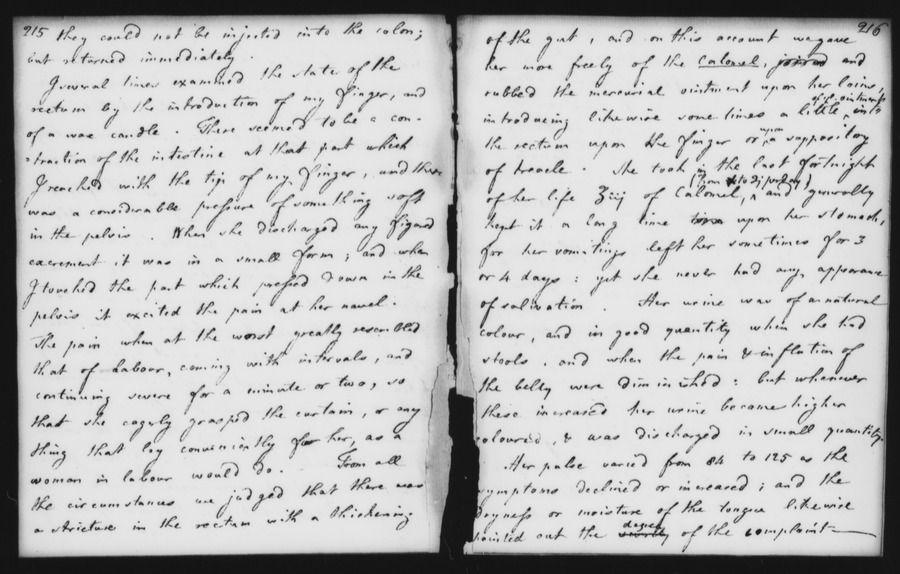 215 they could not be injected into the colon;
but returned immediately.
I several times examined the state of the
rectum by the introduction of my finger, and
of a wax candle. There seemed to be a con-
-traction of the intestine at that part which
I reached with the tip of my finger, and there
was a considerable pressure of something soft
in the pelvis. When she discharged any figured
excrement it was in a small form; and when
I touched the part which pressed down in the
pelvis it excited the pain at her navel.
The pain when at the worst greatly resembled
that of Labour, coming with intervals, and
continuing severe for a minute or two, so
that she eagerly grasped the curtain, or any
thing that lay conveniently for her, as a
woman in labour would do. From all
the circumstances we judged that there was
a stricture in the rectum with a thickening
216
of the gut, and on this account we gave
her more freely of the Calomel, and
rubbed the mercurial ointment upon her loins,
introducing likewise some times a little of the ointment into
the rectum upon the finger or upon a suppository
of treacle. She took in the last fortnight
of her life ʒiij of Calomel, (from to 2j per day) and generally
kept it a long time upon her stomach,
for her vomitings left her sometimes for 3
or 4 days: yet she never had any appearance
of salivation. Her urine was of a natural
colour, and in good quantity when she had
stools, and when the pain & inflation of
the belly were diminished: but whenever
these increased her urine became higher
coloured, & was discharged in small quantity.
Her pulse varied from 84 to 125 as the
symptoms declined or increased; and the
dryness or moisture of the tongue likewise
pointed out the degree of the complaint